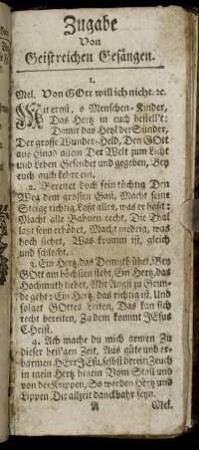 Zugabe
Von
Geistreichen Gesängen.
1.
Mel. Von GOtt will ich nicht. ꝛc.
Mit ernst, o Menschen-Kinder,
Das Hertz in euch bestellt:
Damit das Heyl der Sünder,
Der grosse Wunder-Held, Den GOtt
aus Gnad allein Der Welt zum Licht
und Leben Gesendet und gegeben, Bey
euch auch kehre ein.
2. Bereitet doch fein tüchtig Den
Weg dem grossen Gast, Macht seine
Steige richtig, Laßt alles, was er haßt:
Macht alle Bahnen recht, Die Thal
laßt seyn erhöhet, Macht niedrig, was
hoch stehet, Was krumm ist, gleich
und schlecht.
3. Ein Hertz, das Demuth übet, Bey
GOtt am höchsten steht, Ein Hertz, das
Hochmuth liebet, Mit Angst zu Grun-
de geht: Ein Hertz, das richtig ist, Und
folget GOttes leiten, Das kan sich
recht bereiten, Zu dem kommt JEsus
Christ.
4. Ach mache du mich armen Zu
dieser heil'gen Zeit, Aus güte und er-
barmen HErr JEsu, selbst bereit, Zeuch
in mein Hertz hinein Vom Stall und
von der Krippen, So werden Hertz und
Lippen Dir allzeit danckbahr seyn.
A Mel.